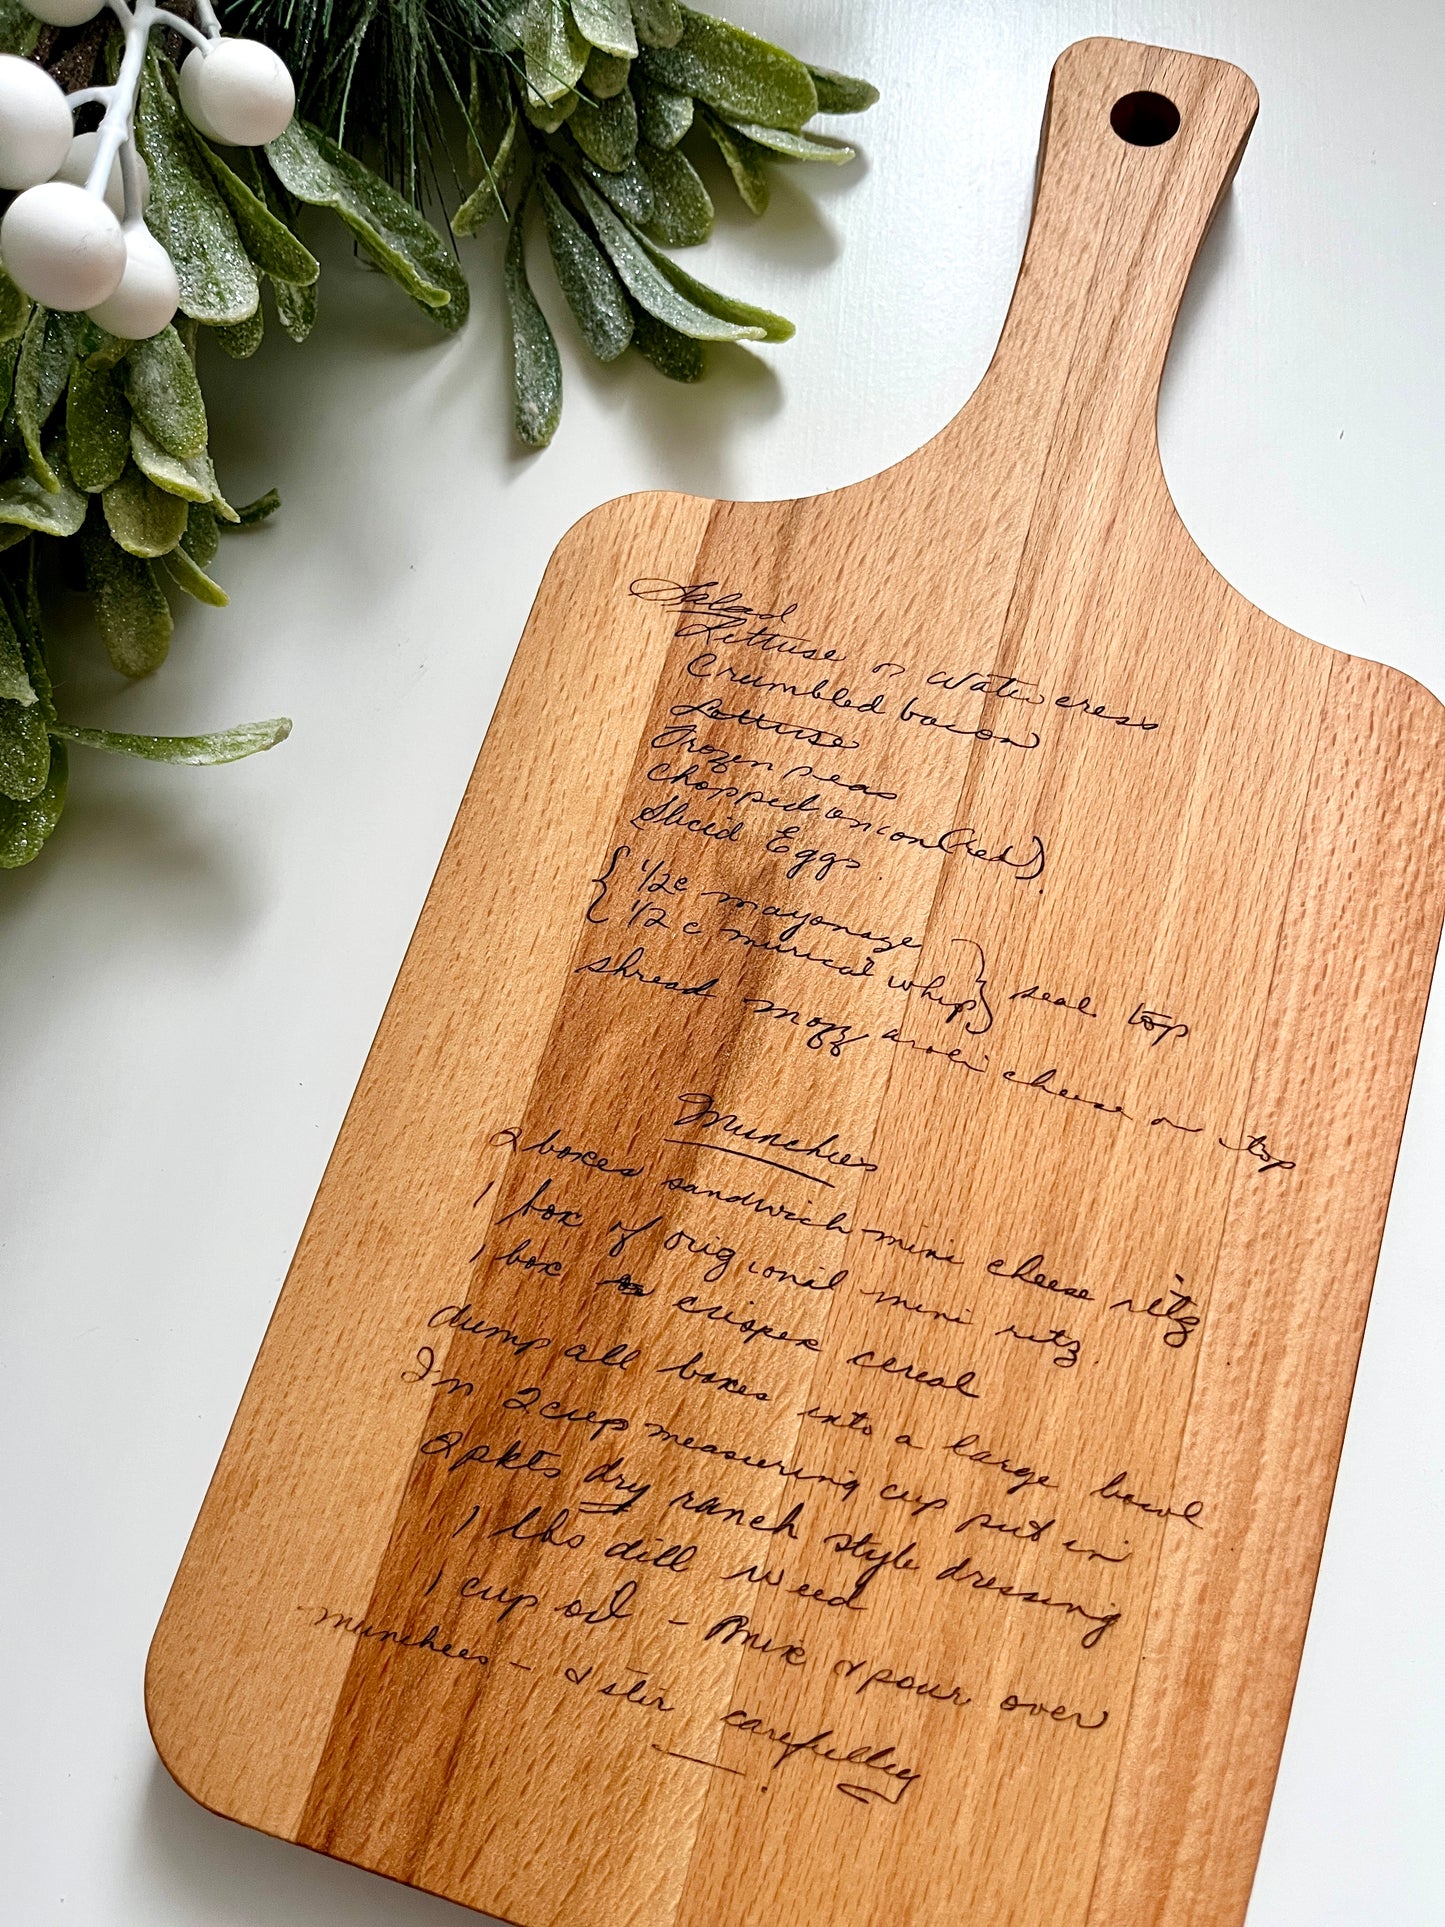 Salad
Lettuse or Watercress
Crumbled bacon
Lettuse
Frozen peas
Chopped onion (red).
Sliced Eggs.
{ 1/2 c mayonaze
{ 1/2 c murical whip } seal top
shread mozzaroli cheese on top
Munchies
2 boxes sandwich mini cheese ritz
1 box of origional mini ritz.
1 box crispex cereal
dump all boxes into a large bowl
In 2 cup measuring cup put in
2 pkts dry ranch style dressing
1 tbs dill weed
1 cup oil - Mix & pour over
munchees - & stir carefully.